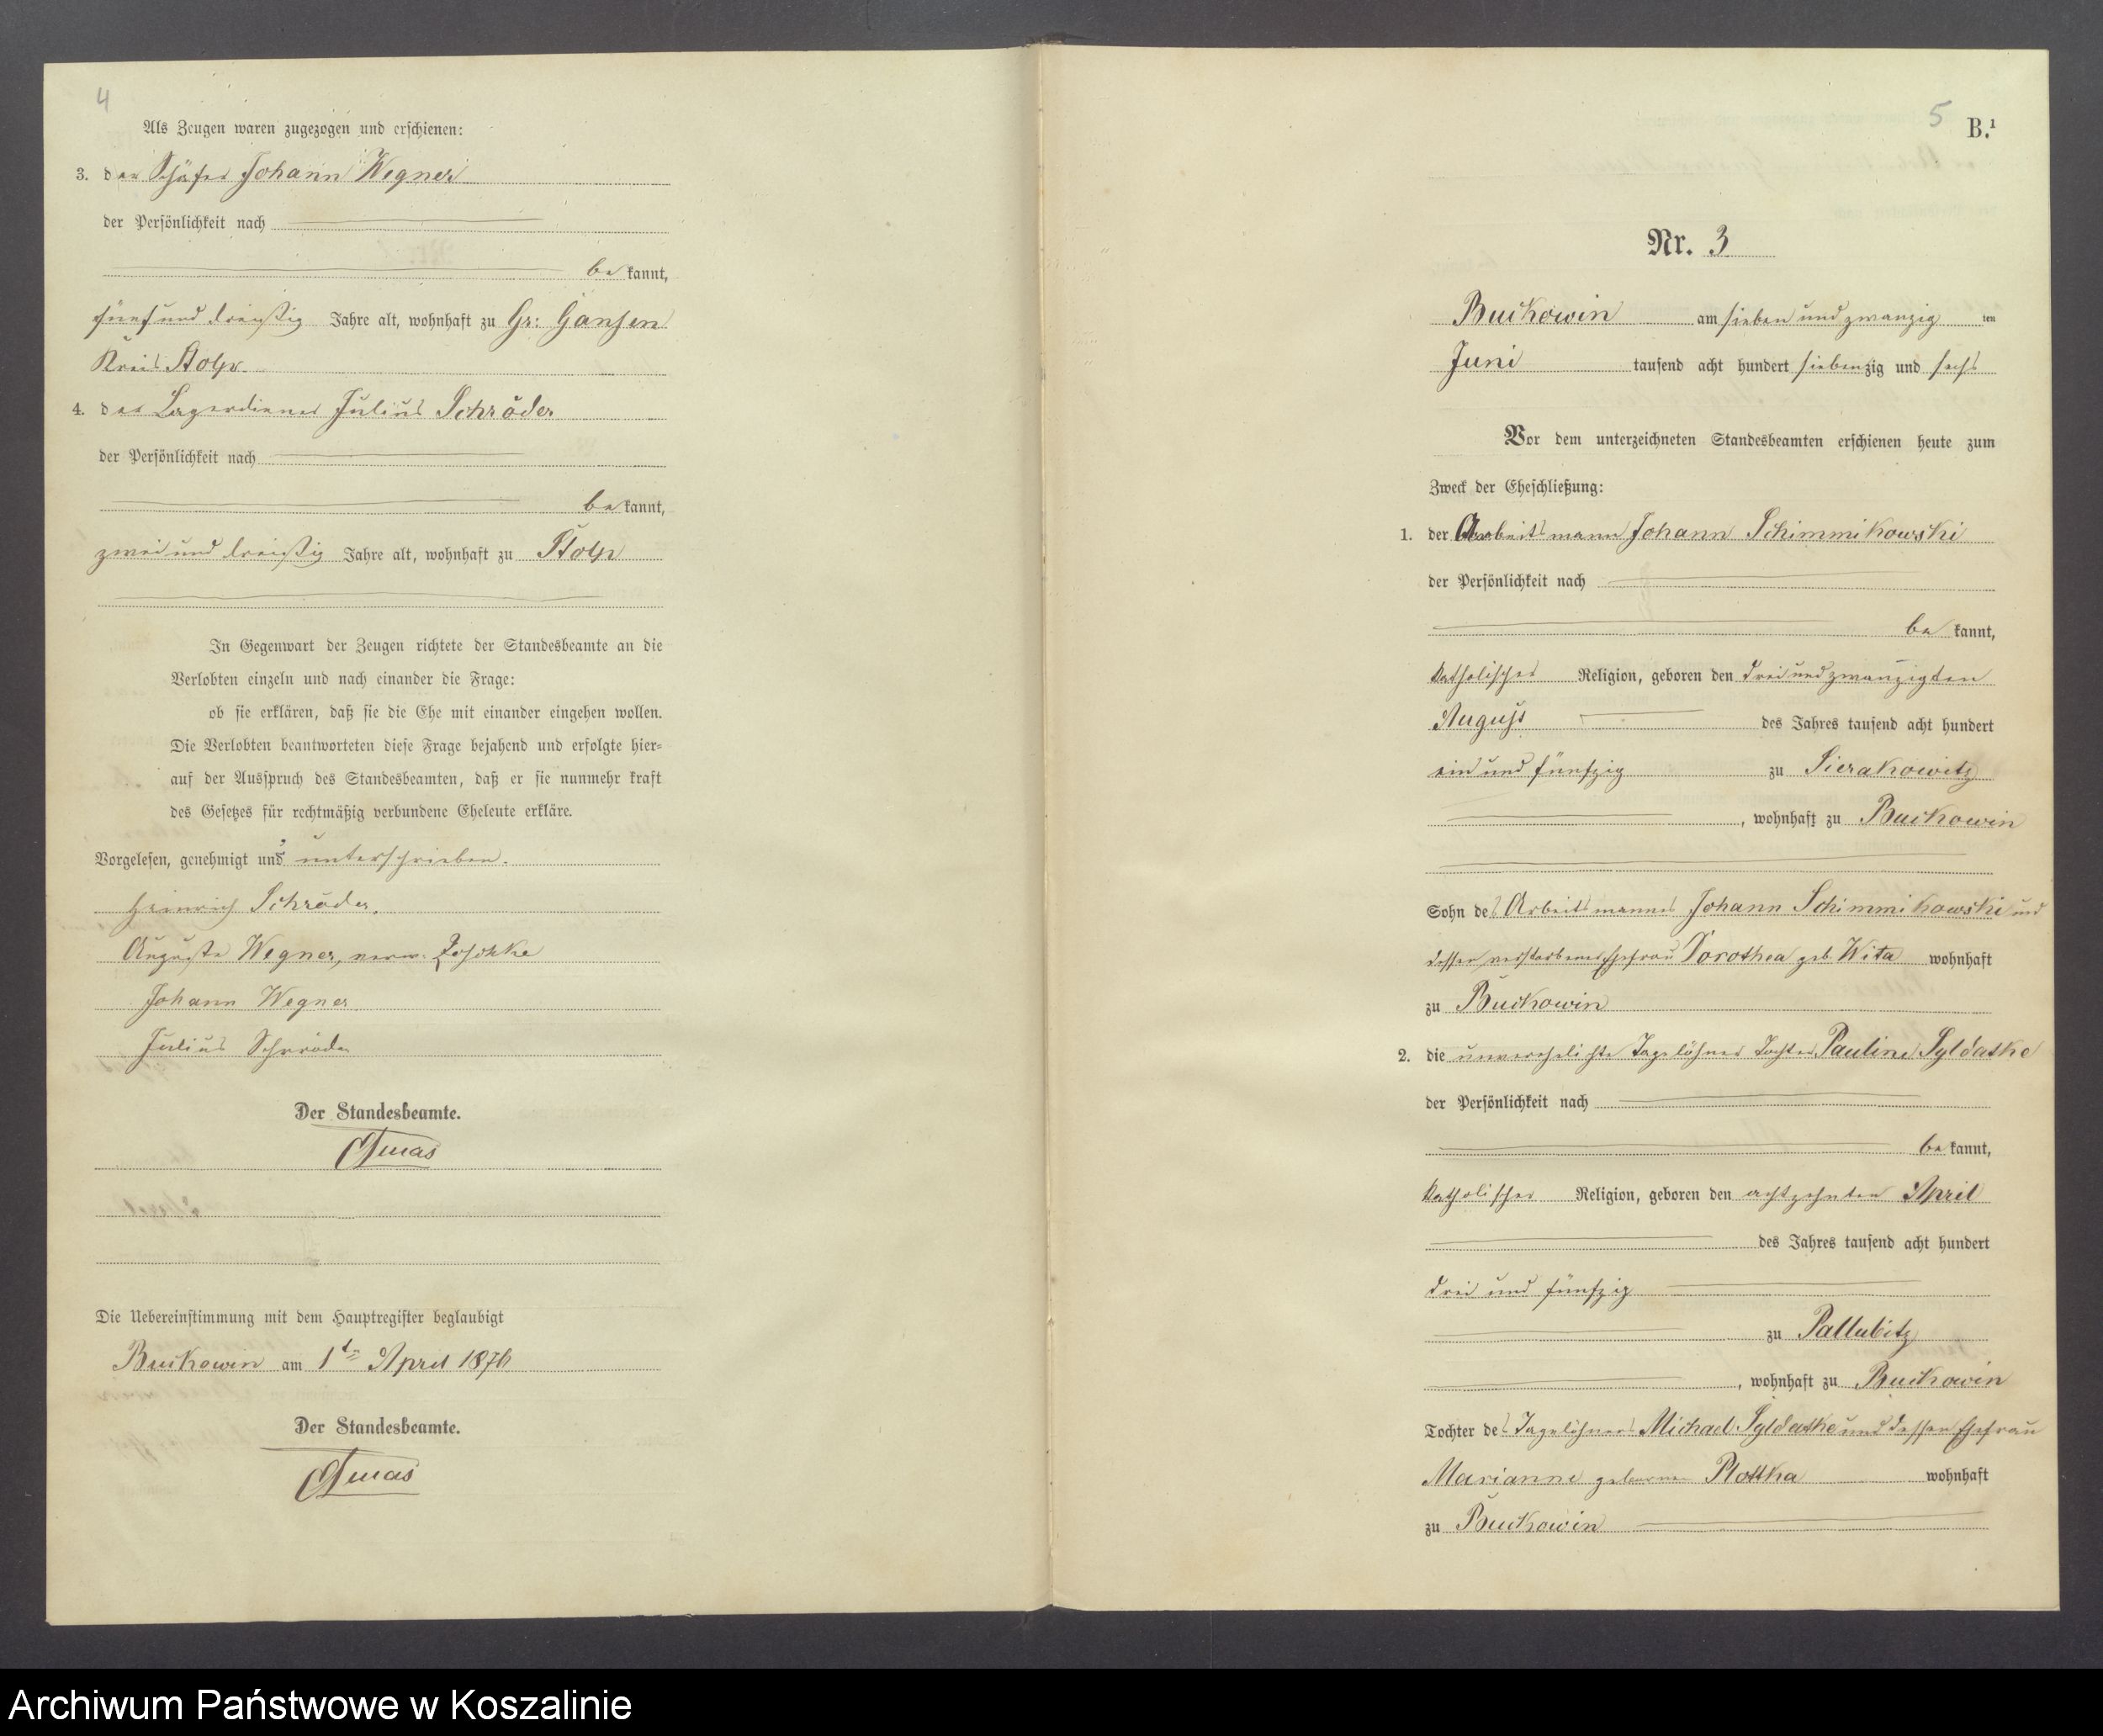 4
Als Zeugen waren zugezogen und erschienen:
3. der Schäfer Johann Wegner
der Persönlichkeit nach
be kannt,
fünf und dreißig Jahre alt, wohnhaft zu Gr: Gansen
Kreis Stolp.
4. der Lagerdiener Julius Schröder
der Persönlichkeit nach
be kannt,
zwei und dreißig Jahre alt, wohnhaft zu Stolp
In Gegenwart der Zeugen richtete der Standesbeamte an die
Verlobten einzeln und nach einander die Frage:
ob sie erklären, daß sie die Ehe mit einander eingehen wollen.
Die Verlobten beantworteten diese Frage bejahend und erfolgte hier-
auf der Ausspruch des Standesbeamten, daß er sie nunmehr kraft
des Gesetzes für rechtmäßig verbundene Eheleute erkläre.
Vorgelesen, genehmigt und unterschrieben.
Heinrich Schröder.
Auguste Wegner, verw.
Johann Wegner
Julius Schröder
Der Standesbeamte.
Die Uebereinstimmung mit dem Hauptregister beglaubigt
Buckowin am 1ten April 1876
Der Standesbeamte.
5 B.¹
Nr. 3
Buckowin am sieben und zwanzig ten
Juni tausend acht hundert siebenzig und sechs
Vor dem unterzeichneten Standesbeamten erschienen heute zum
Zweck der Eheschließung:
1. der Arbeitsmann Johann Schimmikowski
der Persönlichkeit nach
be kannt,
katholischer Religion, geboren den drei und zwanzigten
August des Jahres tausend acht hundert
ein und fünfzig zu Sierakowitz
, wohnhaft zu Buckowin
Sohn des Arbeitsmannes Johann Schimmikowski und
dessen verstorbener Ehefrau Dorothea geb. Wita wohnhaft
zu Buckowin
2. die unverehelichte Tagelöhner Tochter Pauline Syldatke
der Persönlichkeit nach
be kannt,
katholischer Religion, geboren den achtzehnten April
des Jahres tausend acht hundert
drei und fünfzig
zu Pallubitz
, wohnhaft zu Buckowin
Tochter des Tagelöhners Michael Syldatke und dessen Ehefrau
Marianne geborenen Plottka wohnhaft
zu Buckowin
Archiwum Państwowe w Koszalinie